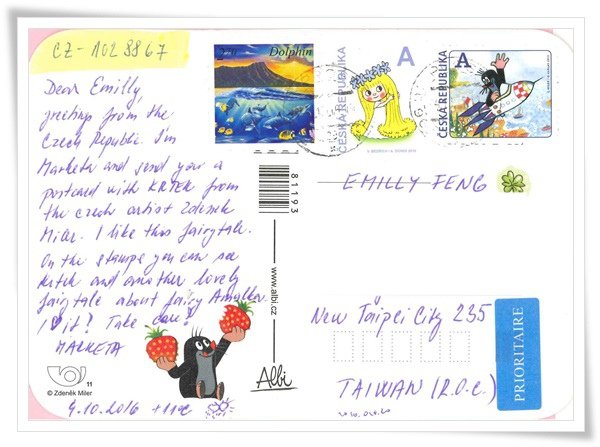 CZ-1028867
Dear Emilly,
greeting from the
Czech Republic. I'm
Marketa and send you a
postcard with KRTEK from
the czech artist Zdenek
Miler. I like this fairytale.
On the stamps you can see
Krtek and another lovely
fairytale about fairy Amálka.
I ♥ it! Take care!
MARKETA
4.10.2016 +11°C
11
© Zdeněk Miler
Dolphin
ČESKÁ REPUBLIKA
A
A
ČESKÁ REPUBLIKA
81193
www.albi.cz
Albi
EMILLY FENG
New Taipei City 235
TAIWAN (R.O.C.)
PRIORITAIRE